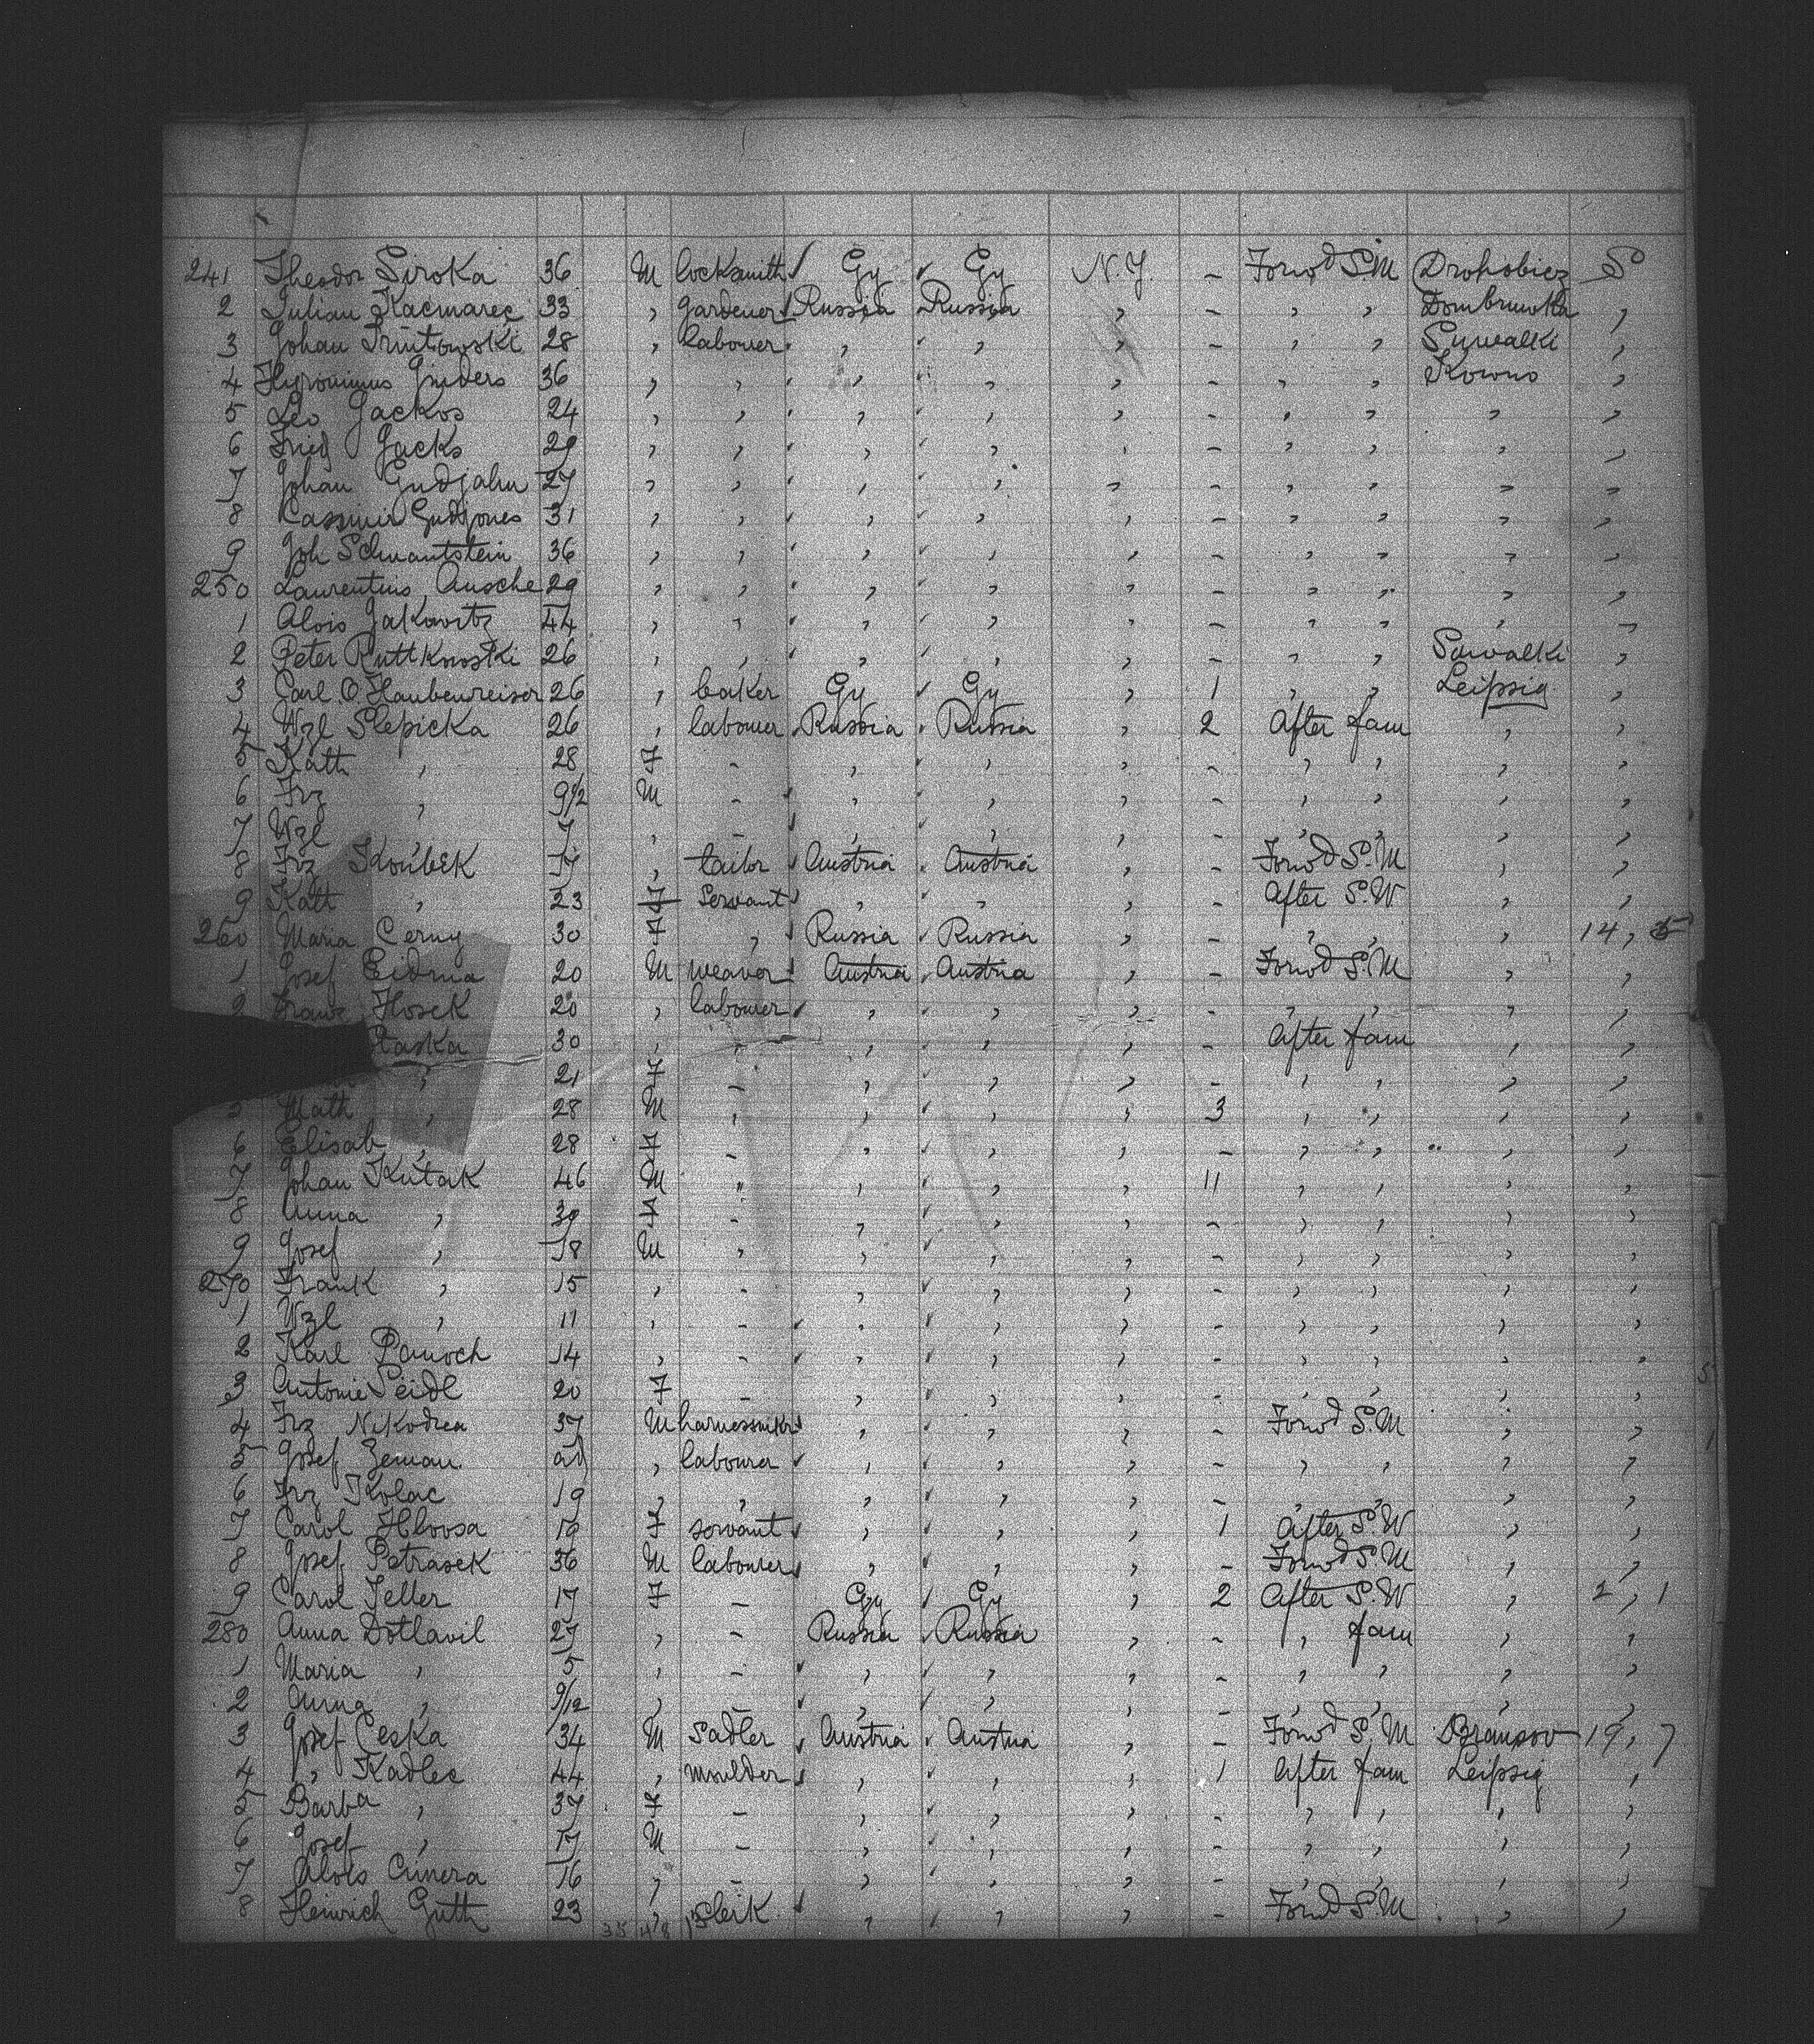 241 Theodor Siroka 36 M locksmith Gy Gy N.Y. - Forwd S.M Drohobicz S
2 Julian Kacmarec 33 , gardener Russia Russia , - , , Dombrowka ,
3 Johan 28 , labourer , , , - , , Suwalki ,
4 Hyronimus Ginders 36 , , , , , - , , Kowno ,
5 Leo Jackos 24 , , , , , - , , , ,
6 Fried Jacks 29 , , , , , - , , , ,
7 Johan Gudjahn 27 , , , , , - , , , ,
8 Cassimir Gudjones 31 , , , , , - , , , ,
9 Joh Schwantstein 36 , , , , , - , , , ,
250 Laurentius Ausche 29 , , , , , - , , , ,
1 Alois Jakowitz 44 , , , , , - , , , ,
2 Peter Ruttkowski 26 , , , , , - , , Suwalki ,
3 Carl O. Haubenreiser 26 , baker Gy Gy , 1 , , Leipsig ,
4 Wzl Slepicka 26 , labourer Russia Russia , 2 After fam , ,
5 Kath , 28 F - , , , - , , , ,
6 Frz , 9½ M - , , , - , , , ,
7 Wzl , 7 , - , , , - , , , ,
8 Frz Koubek 17 , tailor Austria Austria , - Forwd S.M , ,
9 Kath , 23 F Servant , , , - After S.W , ,
260 Maria Cerny 30 F , Russia Russia , - , , , 14, 5
1 Josef 20 M weaver Austria Austria , - Forwd S.M , ,
2 Franz Hosek 20 , labourer , , , - , , , ,
30 , , , , , - After fam , ,
, 21 F - , , , - , , , ,
5 Math , 28 M , , , , 3 , , , ,
6 Elisab , 28 F - , , , - , , , ,
7 Johan Kutak 46 M " , , , 11 , , , ,
8 Anna , 39 F - , , , - , , , ,
9 Josef , 18 M , , , , - , , , ,
270 Frank , 15 , - , , , - , , , ,
1 Wzl , 11 , - , , , - , , , ,
2 Karl Panoch 14 , - , , , - , , , ,
3 Antonie Seidl 20 F - , , , - , , , ,
4 Frz Nikodrea 37 M harnessmkr , , , - Forwd S.M , ,
5 Josef Zeman. , labourer , , , - , , , ,
6 Frz Kolac 19 , , , , , - , , , ,
7 Carol Hlovsa 19 F servant , , , 1 After S.W , ,
8 Josef Petrasek 36 M labourer , , , - Forwd S.M , ,
9 Carol Teller 17 F - Gy Gy , 2 After S.W , 2, 1
280 Anna Dotlavil 27 , - Russia Russia , - , fam , ,
1 Maria , 5 , - , , , - , , , ,
2 Anna , 9/12 , - , , , - , , , ,
3 Josef Ceska 34 M Sadler Austria Austria , - Forwd S.M 19, 7
4 , Kadlec 44 , moulder , , , 1 After fam Leipsig ,
5 Barba , 37 F - , , , - , , , ,
6 Josef , 17 M - , , , - , , , ,
7 Alois Cimera 16 , - , , , - , , , ,
8 Heinrich Guth 23 , clerk , , , - Forwd S.M , ,